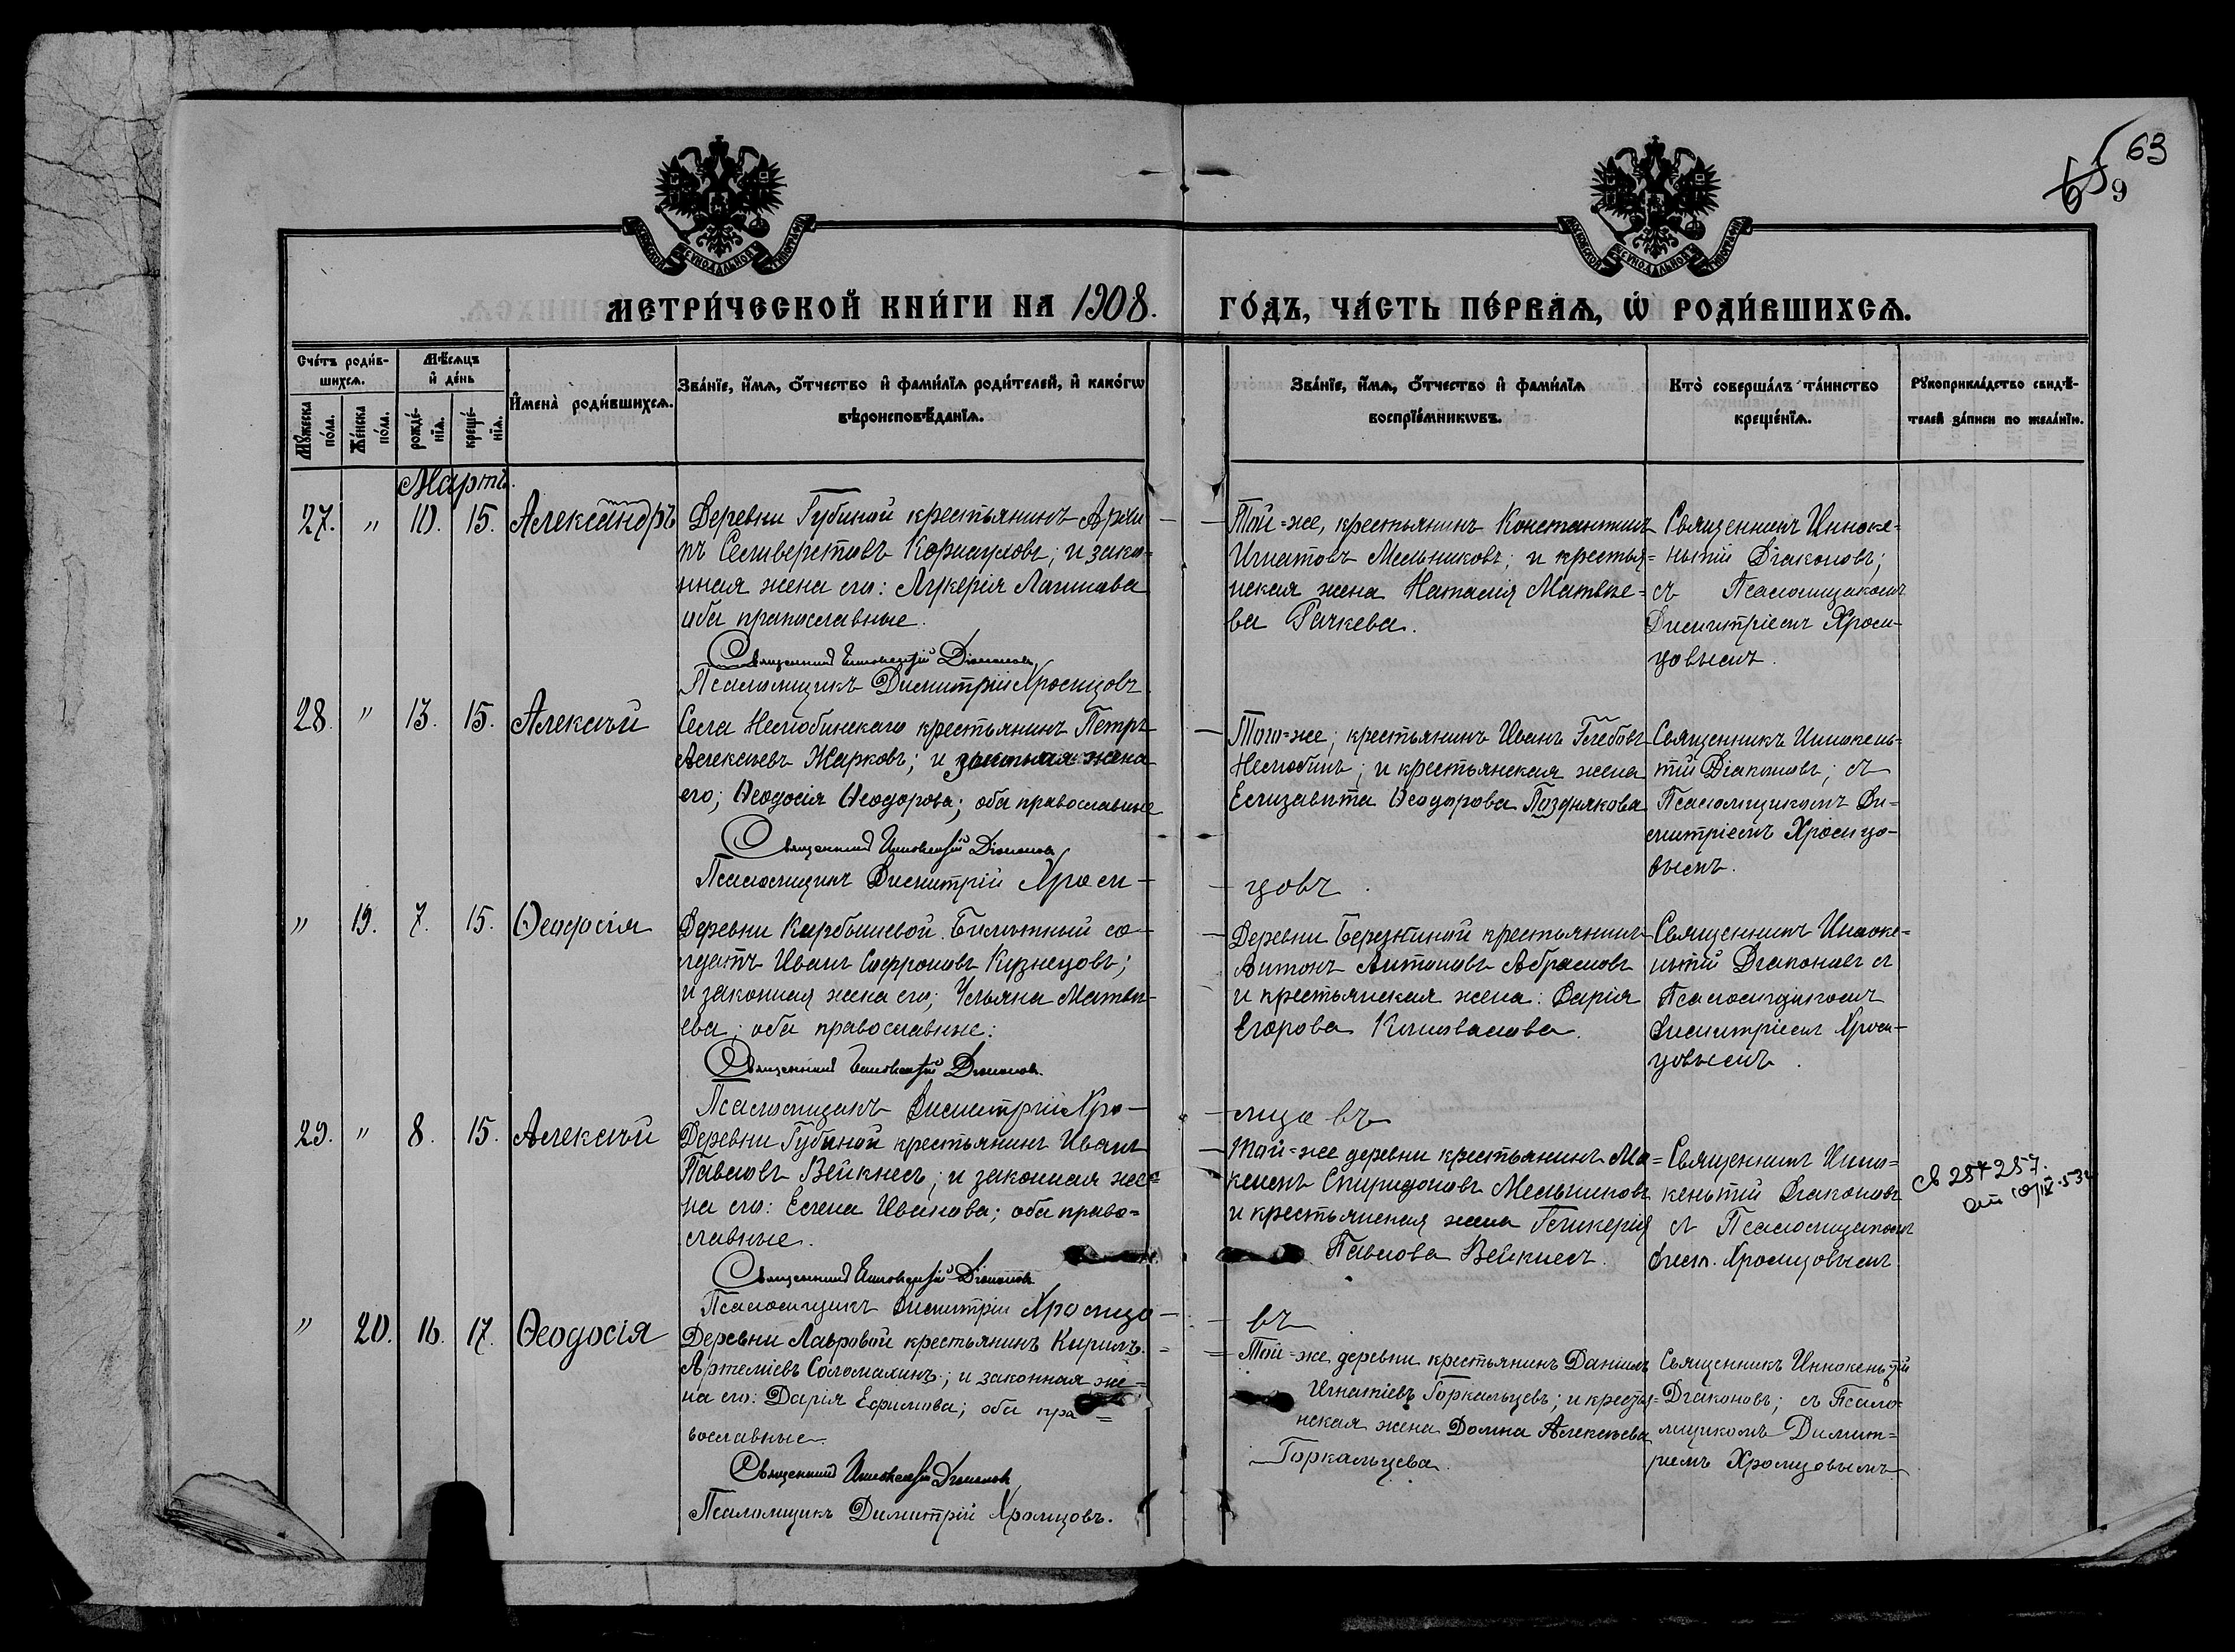 63
65 9
МОСКОВСКОЙ СѴНОДАЛЬНОЙ ТИПОГРАФІИ
МОСКОВСКОЙ СѴНОДАЛЬНОЙ ТИПОГРАФІИ
МЕТРИ́ЧЕСКОЙ КНИ́ГИ НА 1908. ГО́ДЪ, ЧА́СТЬ ПЕ́РВАѦ, Ѡ҆ РОДИ́ВШИХСѦ.
Сче́тъ роди́в-
шихсѧ.
Мѣ́сѧцъ
и҆ де́нь
Мꙋ́жеска
по́ла.
Же́нска
по́ла.
рожде́-
нїѧ.
креще́-
нїѧ.
И҆мена̀ роди́вшихсѧ.
Зва́нїе, и҆́мѧ, ѻ҆́тчество и҆ фами́лїѧ роди́телей, и҆ како́гѡ
вѣроисповѣ́данїѧ.
Зва́нїе, и҆́мѧ, ѻ҆́тчество и҆ фами́лїѧ
воспрїе́мникѡвъ.
Кто̀ соверша́лъ та́инство
креще́нїѧ.
Рꙋкоприкла́дство свидѣ́-
телей за́писи по жела́нїю.
Мартъ.
27. " 10. 15. Александръ
Деревни Губиной крестьянинъ Архи-
пъ Селиверстовъ ; и зако-
нная жена его: Лукерія
оба православные.
Священникъ Иннокентій Діаконовъ
Псаломщикъ Димитрій Хромцовъ
Той-же, крестьянинъ Константинъ
Игнатовъ Мельниковъ; и крестья-
нская жена Наталія Матвѣе-
ва
Священникъ Инноке-
нтій Діаконовъ;
съ Псаломщикомъ
Димитріемъ Хром-
цовымъ.
28. " 13. 15. Алексѣй
Села Нелюбинскаго крестьянинъ Петръ
Алексѣевъ Жарковъ; и законная жена
его; Ѳеодосія Ѳеодорова; оба православные
Священникъ Иннокентій Діаконовъ
Псаломщикъ Димитрій Хром-
цовъ.
Того-же; крестьянинъ Иванъ Глебовъ
Нелюбинъ; и крестьянская жена
Елизавѣта Ѳеодорова Позднякова
Священникъ Иннокень-
тій Діаконовъ; съ
Псаломщикомъ Ди-
митріемъ Хромцо-
вымъ.
" 19. 7. 15. Ѳеодосія
Деревни Карбышевой. Билетный со-
лдатъ Иванъ Софроновъ Кузнецовъ;
и законная жена его; Ульяна Матвѣ-
ева; оба православные:
Священникъ Иннокентій Діаконовъ.
Псаломщикъ Димитрій Хро-
мцовъ
Деревни Березкиной крестьянинъ
Антонъ Антоновъ Абрамовъ
и крестьянская жена: Дарія
Егорова Коновалова.
Священникъ Инноке-
нтій Діаконовъ съ
Псаломщикомъ
Димитріемъ Хром-
цовымъ.
29. " 8. 15. Алексѣй
Деревни Губиной крестьянинъ Иванъ
Павловъ Вейкнесъ; и законная же-
на его: Елена Иванова; оба право-
славные.
Священникъ Иннокентій Діаконовъ
Псаломщикъ Димитрій Хромцо-
въ
Той-же деревни крестьянинъ Ма-
ксимъ Спиридоновъ Мельниковъ
и крестьянская жена Гликерія
Павлова Вейкнесъ.
Священникъ Инно-
кеньтій Діаконовъ
съ Псаломщикомъ
Дим. Хромцовымъ
257257.
" 20. 16. 17. Ѳеодосія
Деревни Лавровой крестьянинъ Кирилъ
Артеміевъ Соломахинъ; и законная же-
на его: Дарія Ефимова; оба пра-
вославные.
Священникъ Иннокентій Діаконовъ
Псаломщикъ Димитрій Хромцовъ.
Той-же деревни крестьянинъ Даніилъ
Игнатіевъ Горкальцевъ; и кресть-
нская жена Домна Алексѣева
Горкальцева.
Священникъ Иннокеньтій
Діаконовъ; съ Псало-
мщикомъ Димит-
ріемъ Хромцовымъ